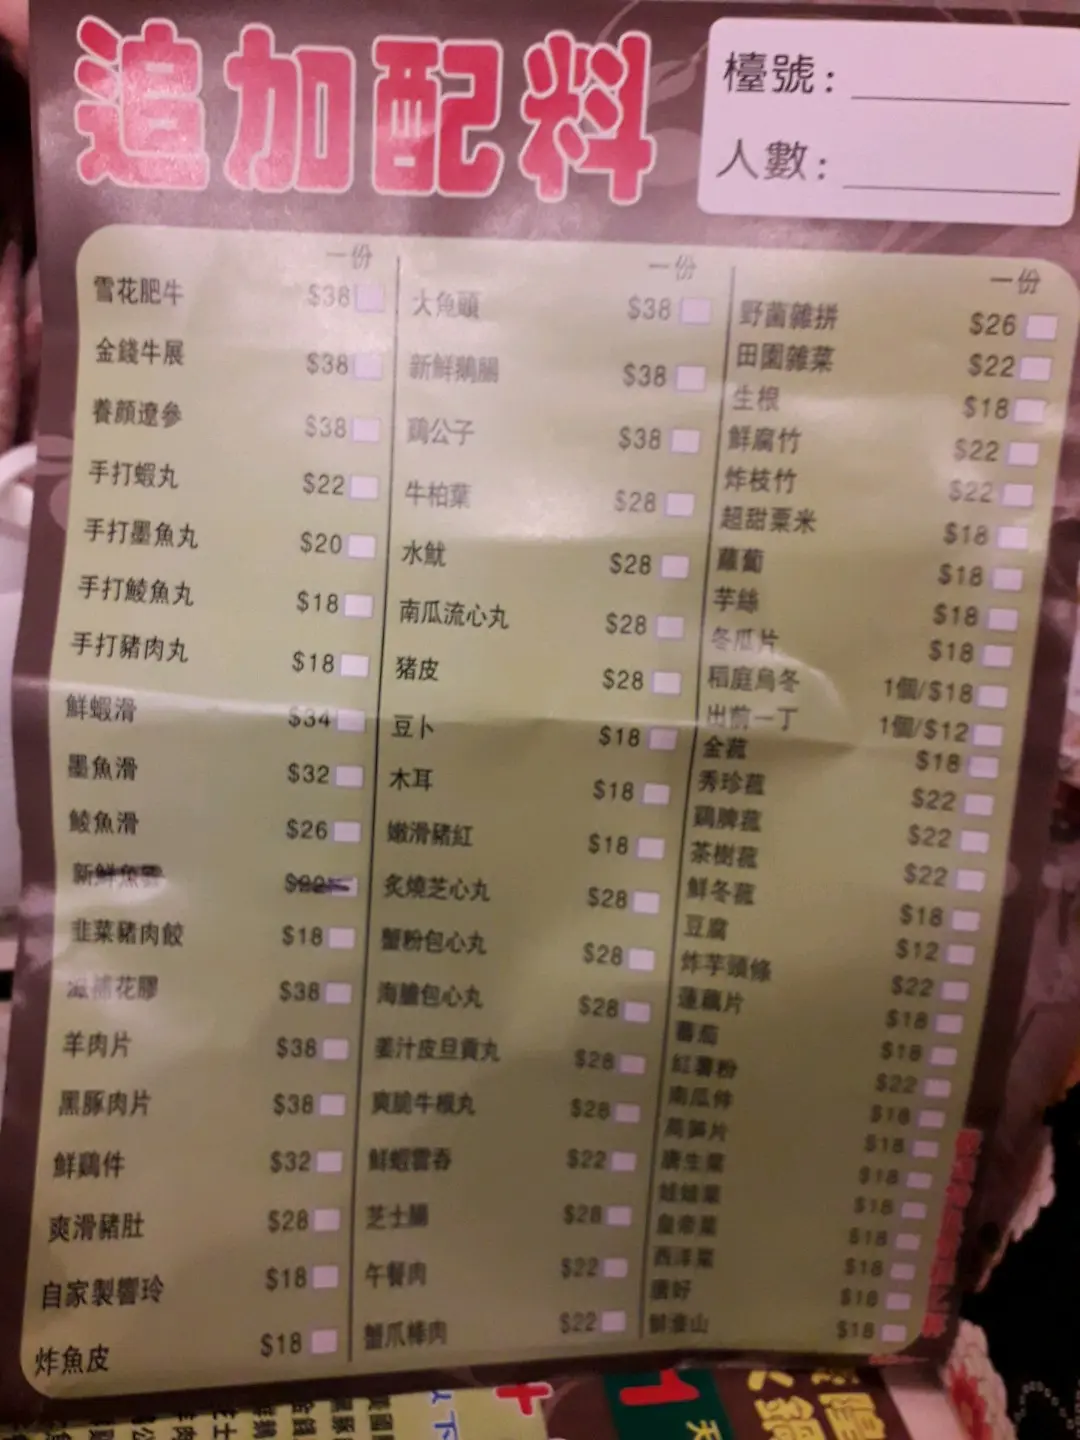 追加配料
檯號：
人數：
一份
雪花肥牛 $38
金錢牛展 $38
養顏遼參 $38
手打蝦丸 $22
手打墨魚丸 $20
手打鯪魚丸 $18
手打豬肉丸 $18
鮮蝦滑 $34
墨魚滑 $32
鯪魚滑 $26
新鮮魚 $22
韭菜豬肉餃 $18
滋補花膠 $38
羊肉片 $38
黑豚肉片 $38
鮮鷄件 $32
爽滑豬肚 $28
自家製響玲 $18
炸魚皮 $18
一份
大魚頭 $38
新鮮鵝腸 $38
鷄公子 $38
牛柏葉 $28
水魷 $28
南瓜流心丸 $28
猪皮 $28
豆卜 $18
木耳 $18
嫩滑豬紅 $18
炙燒芝心丸 $28
蟹粉包心丸 $28
海膽包心丸 $28
姜汁皮旦貢丸 $28
爽脆牛根丸 $28
鮮蝦雲吞 $22
芝士腸 $28
午餐肉 $22
蟹爪棒肉 $22
一份
野菌雜拼 $26
田園雜菜 $22
生根 $18
鮮腐竹 $22
炸枝竹 $22
超甜粟米 $18
蘿蔔 $18
芋絲 $18
冬瓜片 $18
稻庭烏冬 1個/$18
出前一丁 1個/$12
金菰 $18
秀珍菰 $22
鷄脾菰 $22
茶樹菰 $22
鮮冬菰 $18
豆腐 $12
炸芋頭條 $22
蓮藕片 $18
蕃茄 $18
紅薯粉 $22
南瓜件 $18
萵笋片 $18
唐生菜 $18
娃娃菜 $18
皇帝菜 $18
西洋菜 $18
唐好 $18
鮮淮山 $18
以下